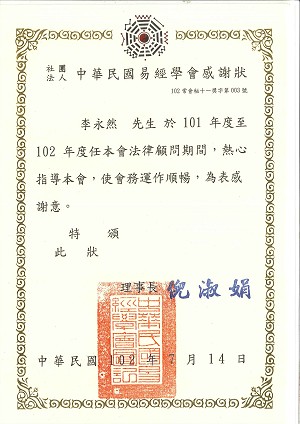 社團法人 中華民國易經學會感謝狀
102常會帖十一獎字第003號
李永然 先生於101年度至
102年度任本會法律顧問期間，熱心
指導本會，使會務運作順暢，為表感
謝意。
特頒
此狀
理事長 倪淑娟
中華民國 102 年 7 月 14 日